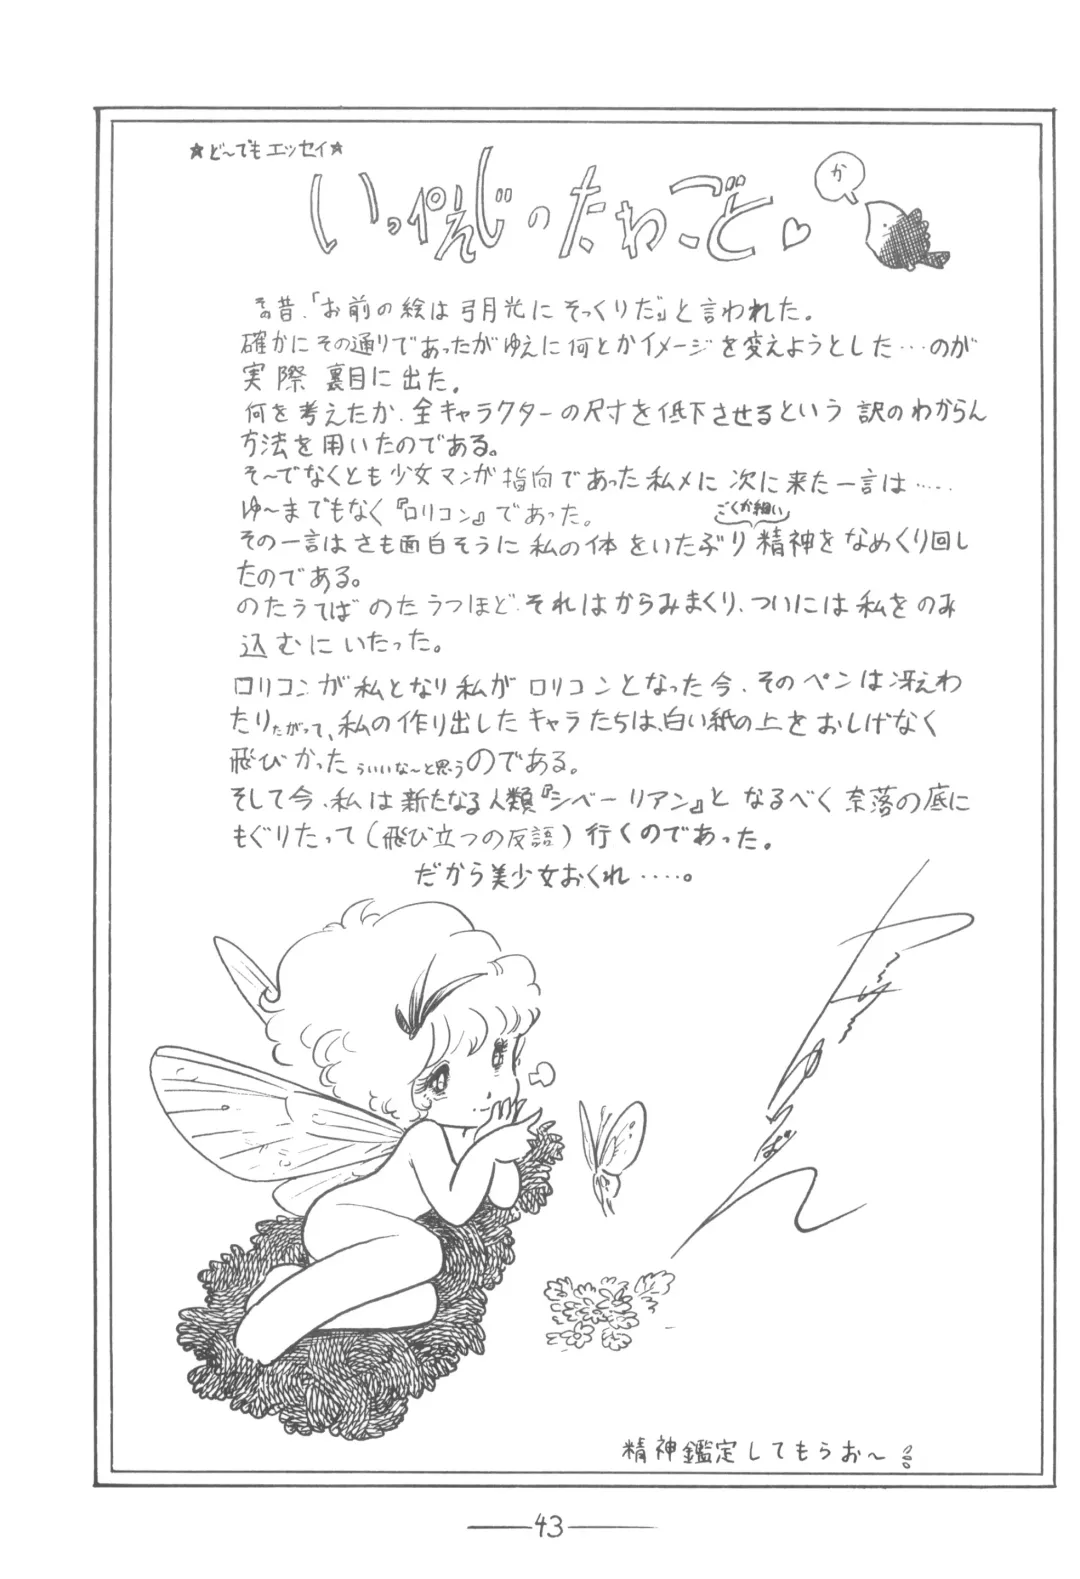 ★ど〜でもエッセイ★
いっぺえじのたわごと♡
か
その昔、「お前の絵は弓月光にそっくりだ」と言われた。
確かにその通りであったがゆえに何とかイメージを変えようとした…のが
実際裏目に出た。
何を考えたか、全キャラクターの尺寸を低下させるという訳のわからん
方法を用いたのである。
そ〜でなくとも少女マンガ指向であった私メに次に来た一言は……
ゆ〜までもなく『ロリコン』であった。
ごくか細い
その一言はさも面白そうに私の体をいたぶり精神をなめくり回し
たのである。
のたうてばのたうつほどそれはからみまくり、ついには私をのみ
込むにいたった。
ロリコンが私となり私がロリコンとなった今、そのペンは冴えわ
たりたがって、私の作り出したキャラたちは、白い紙の上をおしげなく
飛びかったういいな〜と思うのである。
そして今、私は新たなる人類『シベーリアン』となるべく奈落の底に
もぐりたって(飛び立つの反語)行くのであった。
だから美少女おくれ……。
精神鑑定してもらお〜
43